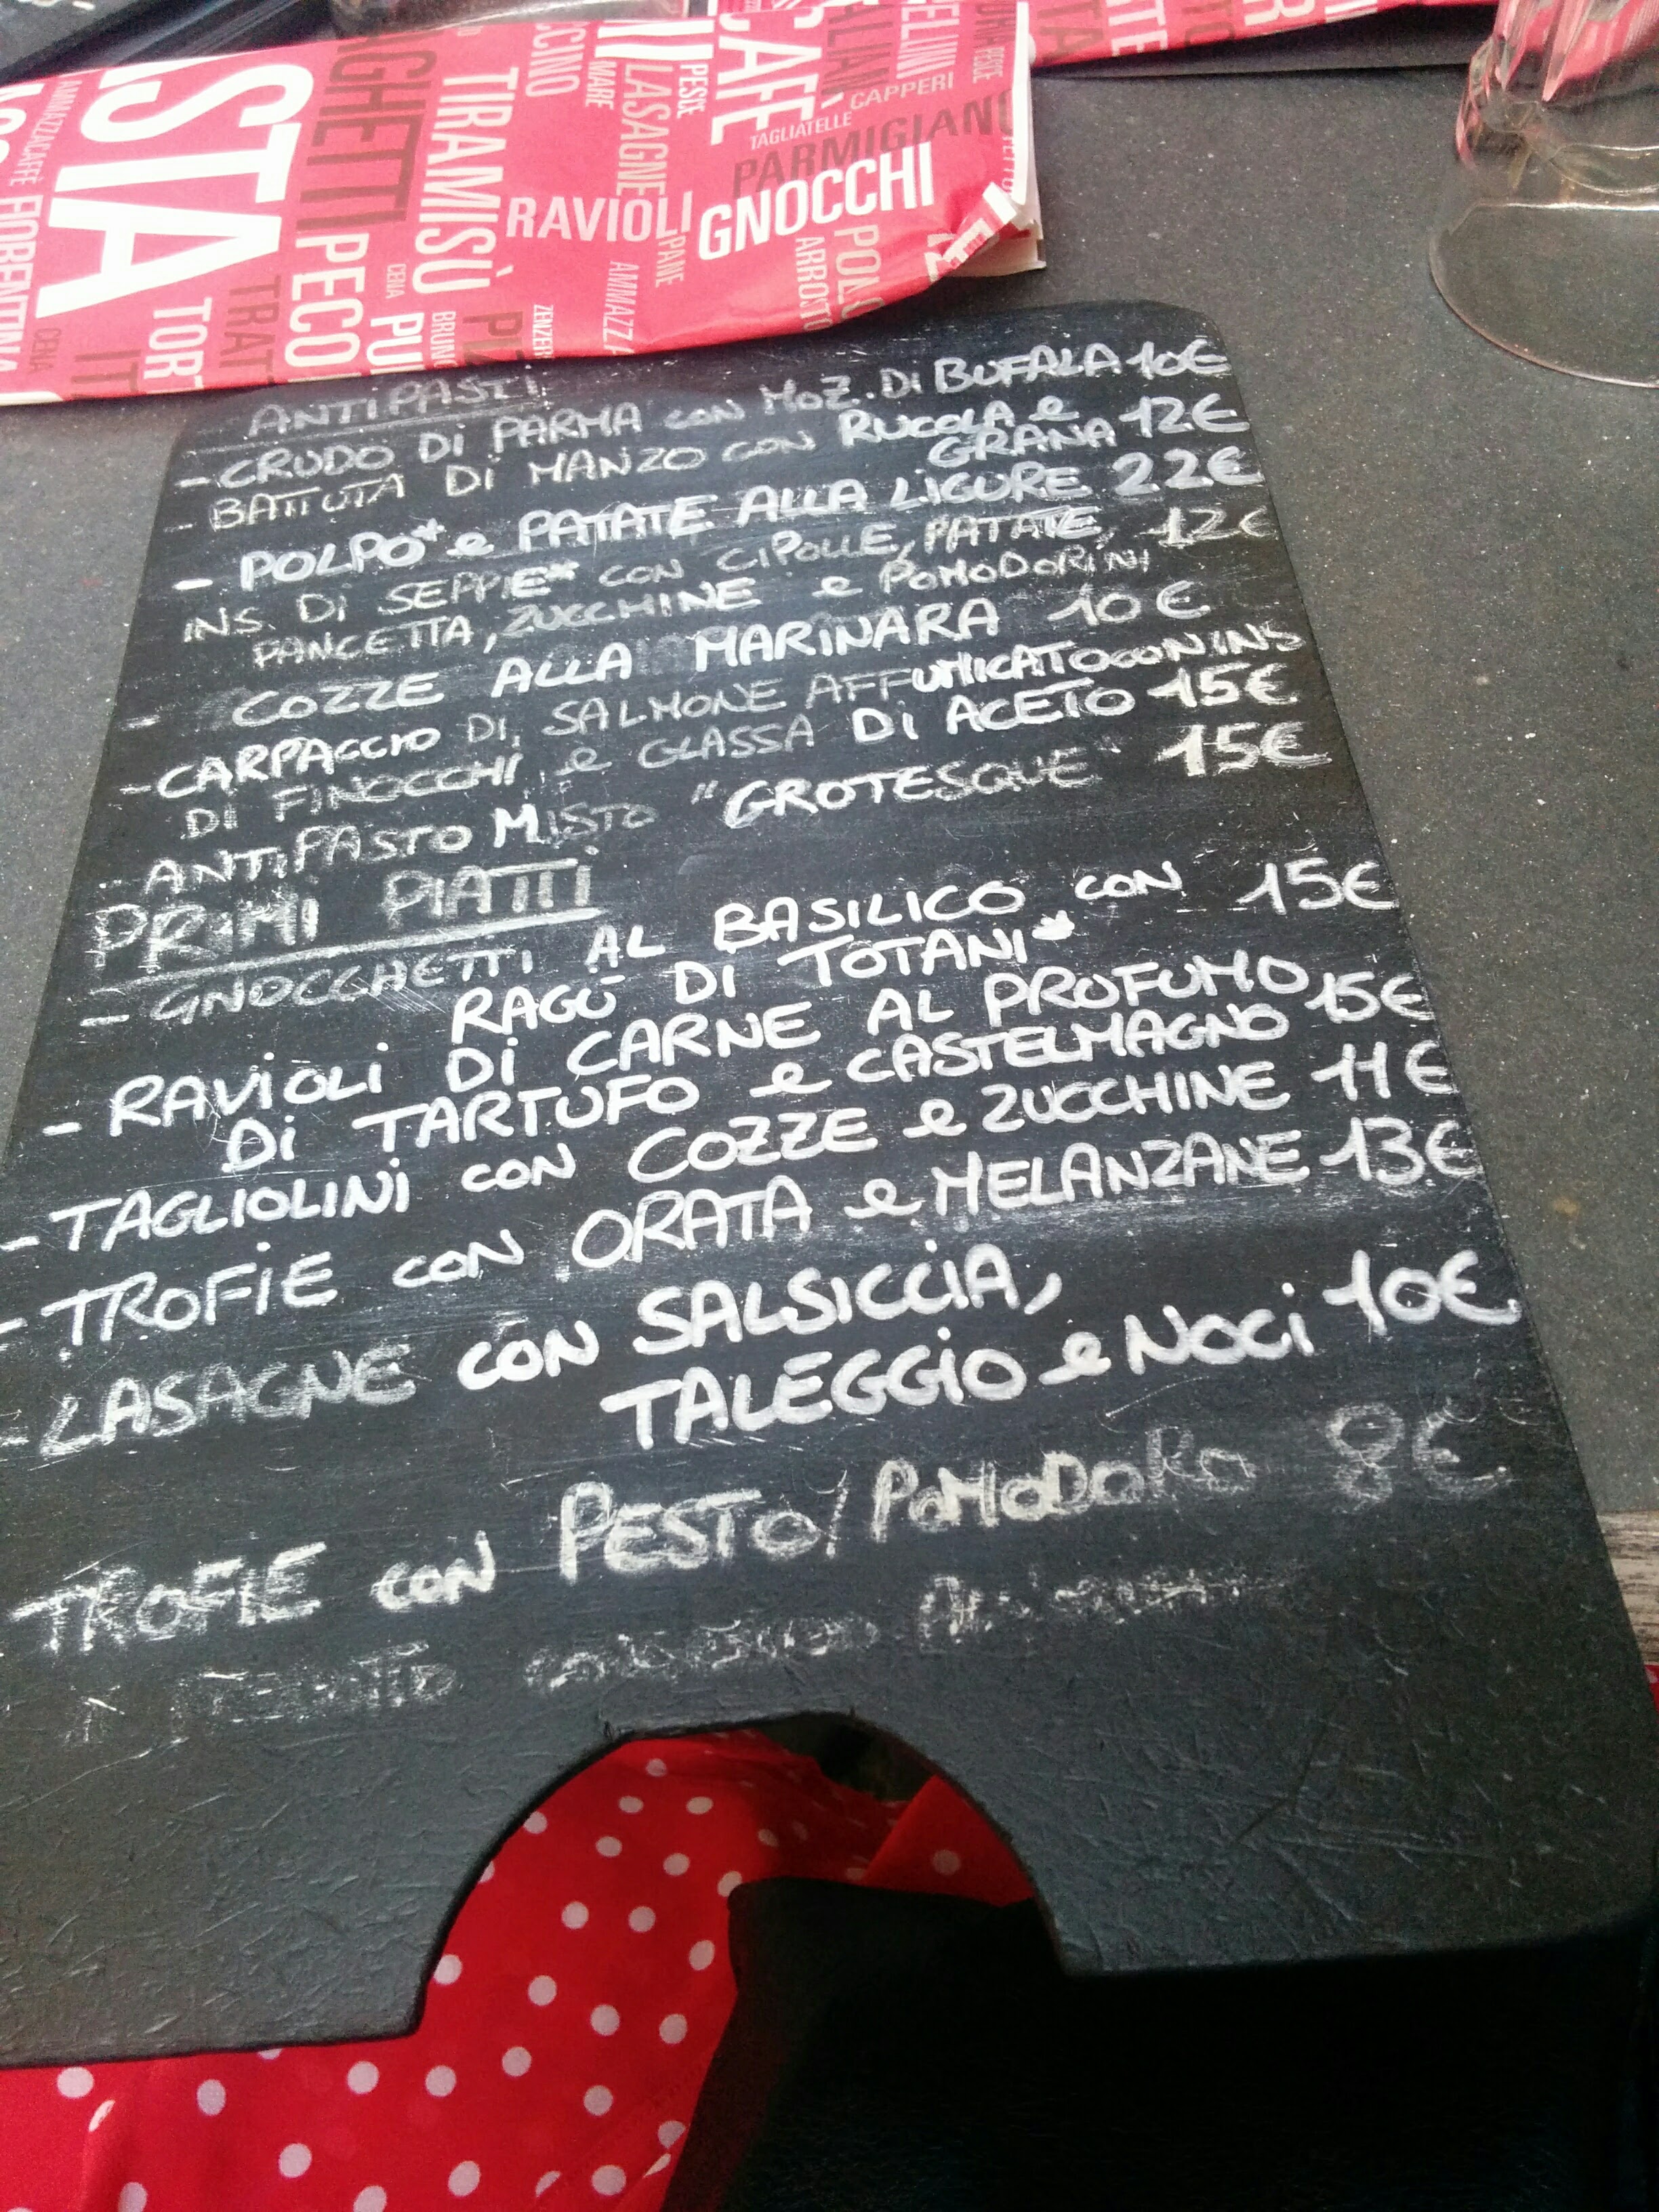 ASTA
AMMAZZACAFFÈ
FIORENTINA
CENA
TORT
TRAT
SPAGHETTI
PECO
CENA
PU
TIRAMISÙ
BRUNO
CCINO
ZENZER
MARE
LASAGNE
PESCE
RAVIOLI
PANE
AMMAZZA
CAFE
TAGLIATELLE
CAPPERI
PARMIGIANO
GNOCCHI
ARROSTO
PESCE
ANTIPASTI
- CRUDO DI PARMA CON MOZ. DI BUFALA 10€
- BATTUTA DI MANZO CON RUCOLA e GRANA 12€
- POLPO* e PATATE ALLA LIGURE 22€
INS. DI SEPPIE* CON CIPOLLE, PATATE, 12€
PANCETTA, ZUCCHINE e POMODORINI
- COZZE ALLA MARINARA 10€
- CARPACCIO DI SALMONE AFFUMICATO CON INS
DI FINOCCHI e GLASSA DI ACETO 15€
- ANTIPASTO MISTO "GROTESQUE" 15€
PRIMI PIATTI
- GNOCCHETTI AL BASILICO CON 15€
RAGÙ DI TOTANI*
- RAVIOLI DI CARNE AL PROFUMO
DI TARTUFO e CASTELMAGNO 15€
- TAGLIOLINI CON COZZE e ZUCCHINE 11€
- TROFIE CON ORATA e MELANZANE 13€
- LASAGNE CON SALSICCIA,
TALEGGIO e NOCI 10€
TROFIE CON PESTO/POMODORO 8€